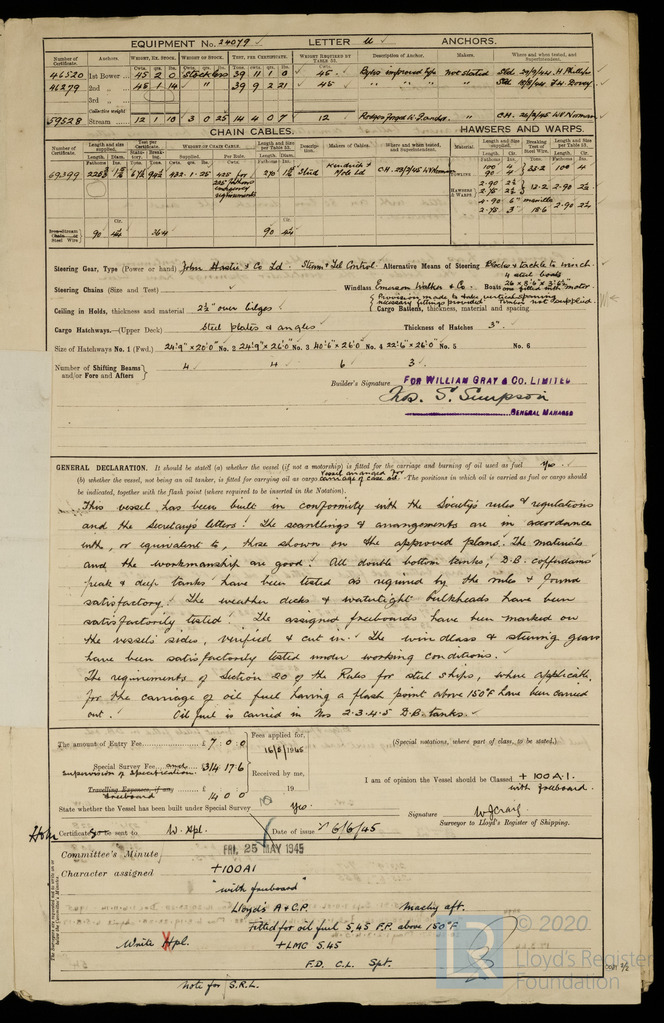 EQUIPMENT No. 34079 LETTER U ANCHORS.
Number of Certificate. Anchors. WEIGHT, EX. STOCK. WEIGHT OF STOCK. TEST, PER CERTIFICATE. WEIGHT REQUIRED BY TABLE 53. Description of Anchor. Makers. Where and when tested, and Superintendent.
Cwts. qrs. lbs.
46520 1st Bower 45 2 0 Stockless 39 11 1 0 45 Byers improved type Not stated Sld
46279 2nd „ 45 1 14 39 9 2 21 Sld
3rd „
Collective weight
59528 Stream 12 1 10 3 0 25 14 4 0 7 12 C.H.
CHAIN CABLES. HAWSERS AND WARPS.
Number of Certificate. Length and size supplied. Test per Certificate. WEIGHT OF CHAIN CABLE. Length and size per Table 53. Description. Makers of Cables. Where and when tested, and Superintendent. Material. Length and Size supplied. Breaking Test of Steel Wire. Length and size per Table 53.
Length. Diam. Statutory. Breaking. Supplied. Per Rule. Length. Diam.
69399 432·1·25 425 for 270 Stud Kendrick & Mole Ltd C.H. 100 4 33·2 100 4
90 4
HAWSERS & WARPS 2·90 13·2 2·90
4·90 6" manilla
2·75 3" 18·6
Iron Stream Chain or Steel Wire 90 90
Steering Gear, Type (Power or hand) John Hastie & Co Ld. Alternative Means of Steering Blocks & tackle to winch
Steering Chains (Size and Test) Windlass Emerson Walker & Co Boats 4 steel boats one fitted with motor
Ceiling in Holds, thickness and material 2½" over bilges Cargo Battens, thickness, material and spacing Provision made to take vertical sparring necessary fittings provided Timber not supplied.
Cargo Hatchways.—(Upper Deck) Steel plates & angles Thickness of Hatches 3"
Size of Hatchways No. 1 (Fwd.) 24'9" × 20'0" No. 2 24'9" × 26'0" No. 3 No. 4 22'6" × 26'0" No. 5 No. 6
Number of Shifting Beams and/or Fore and Afters 4 4 6 3
Builder's Signature FOR WILLIAM GRAY & CO. LIMITED
Jos. S. Simpson
GENERAL MANAGER
GENERAL DECLARATION. It should be stated (a) whether the vessel (if not a motorship) is fitted for the carriage and burning of oil used as fuel Yes
Vessel arranged for
(b) whether the vessel, not being an oil tanker, is fitted for carrying oil as cargo carriage of case oil. The positions in which oil is carried as fuel or cargo should
be indicated, together with the flash point (where required to be inserted in the Notation).
This vessel has been built in conformity with the Society's rules & regulations
and the Secretary's letters. The scantlings & arrangements are in accordance
with, or equivalent to, those shown on the approved plans. The materials
and the workmanship are good. All double bottom tanks, D.B. cofferdams
peak & deep tanks have been tested as required by the rules & found
satisfactory. The weather decks & watertight bulkheads have been
satisfactorily tested. The assigned freeboards have been marked on
the vessels' sides, verified & cut in. The windlass & steering gears
have been satisfactorily tested under working conditions.
The requirements of Section 20 of the Rules for steel ships, where applicable
for the carriage of oil fuel having a flash point above 150°F have been carried
out. Oil fuel is carried in Nos 2·3·4·5 D.B. tanks.
The amount of Entry Fee £ 7 0 0 Fees applied for, 16/5/1945 (Special notations, where part of class, to be stated.)
Special Survey Fee and Supervision of Specification. 314 17·6 Received by me, 19
Travelling Expenses, if any, £
Freeboard 14 0 0
I am of opinion the Vessel should be Classed +100A·1. with freeboard.
State whether the Vessel has been built under Special Survey Yes
Signature W J Craig
Surveyor to Lloyd's Register of Shipping.
Certificate to be sent to W. Hpl. Date of issue 6/6/45
Committee's Minute FRI. 25 MAY 1945
Character assigned +100A1
"with freeboard"
Lloyd's A & C.P. Machy aft.
Fitted for oil fuel 5,45 F.P. above 150°F
Write Hpl. +LMC 5.45
F.D. C.L. Spt.
Note for S.R.L.
The Surveyors are requested not to write on or below the Committee's Minutes.
© 2020
Lloyd's Register
Foundation